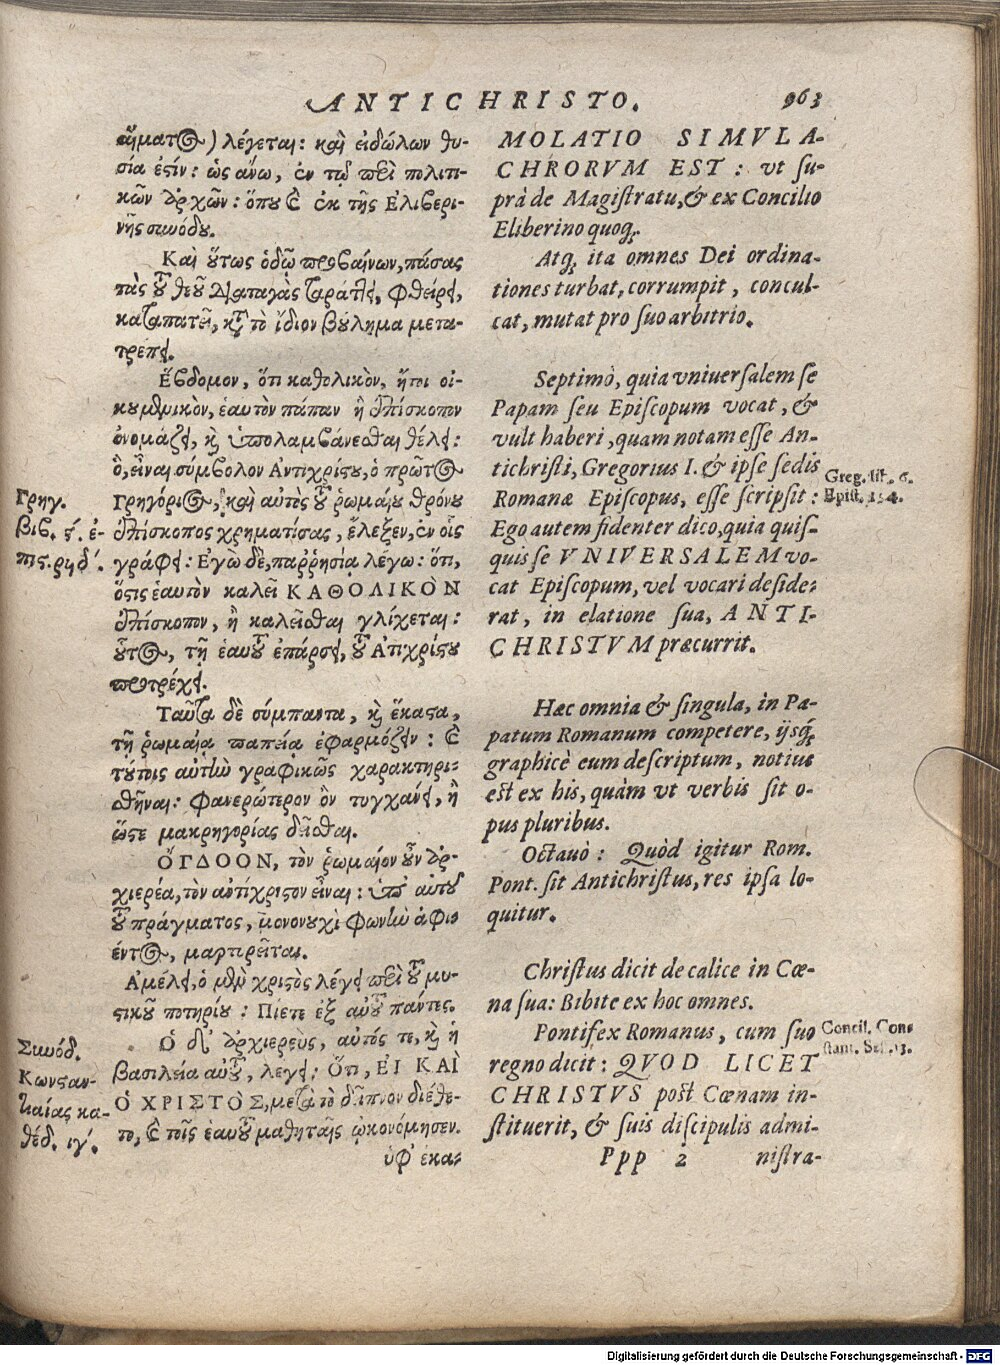 ANTICHRISTO. 963
αἵματος) λέγεται: καὶ εἰδώλων θυ-
σία ἐστίν: ὡς ἄνω, ἐν τῷ περὶ πολιτι-
κῶν ἀρχῶν: ὅπου καὶ ἐκ τῆς Ἐλιβερι-
νῆς συνόδου.
Καὶ οὕτως ὁδῷ προβαίνων, πάσας
τὰς τοῦ θεοῦ διαταγὰς ταράττει, φθείρει,
καταπατεῖ, κατὰ τὸ ἴδιον βούλημα μετα-
τρέπει.
Ἕβδομον, ὅτι καθολικὸν, ἤτοι οἰ-
κουμενικὸν, ἑαυτὸν πάπαν ἢ ἐπίσκοπον
ὀνομάζει, καὶ ὑπολαμβάνεσθαι θέλει:
ὃ, εἶναι σύμβολον Ἀντιχρίστου, ὁ πρῶτος
Γρηγόριος, καὶ αὐτὸς τοῦ ῥωμαίου θρόνου
ἐπίσκοπος χρηματίσας, ἔλεξεν, ἐν οἷς
γράφει: Ἐγὼ δὲ, παῤῥησίᾳ λέγω: ὅτι,
ὅστις ἑαυτὸν καλεῖ ΚΑΘΟΛΙΚΟΝ
ἐπίσκοπον, ἢ καλεῖσθαι γλίχεται:
οὗτος, τῇ ἑαυτοῦ ἐπάρσει, τοῦ Ἀντιχρίστου
προτρέχει.
Ταῦτα δὲ σύμπαντα, καὶ ἕκαστα,
τῇ ῥωμαίᾳ παπείᾳ ἐφαρμόζειν: καὶ
τύποις αὐτὴν γραφικῶς χαρακτηρι-
σθῆναι: φανερώτερον ὂν τυγχάνει, ἢ
ὥστε μακρηγορίας δεῖσθαι.
ὌΓΔΟΟΝ, τὸν ῥωμαίον οὖν ἀρ-
χιερέα, τὸν ἀντίχριστον εἶναι: ὑπ' αὐτοῦ
τοῦ πράγματος, μονονουχὶ φωνὴν ἀφι-
έντος, μαρτυρεῖται.
Ἀμέλει, ὁ μὲν χριστὸς λέγει περὶ τοῦ μυ-
στικοῦ ποτηρίου: Πίετε ἐξ αὐτοῦ πάντες.
Ὁ δ' ἀρχιερεὺς, αὐτός τε, καὶ ἡ
βασιλεία αὐτοῦ, λέγει: Ὅτι, ΕΙ ΚΑΙ
Ὁ ΧΡΙΣΤΟΣ, μετὰ τὸ δεῖπνον διέθε-
το, καὶ τοῖς ἑαυτοῦ μαθηταῖς ᾠκονόμησεν.
ὑφ' ἑκα-
Γρηγ.
βιβ. ϛ'. ἐ-
πισ. ρϟδ'.
Συνόδ.
Κωνσταν-
τιαίας κα-
θέδ. ιγ'.
MOLATIO SIMVLA-
CHRORVM EST: vt su-
prà de Magistratu, & ex Concilio
Eliberino quoq;.
Atq; ita omnes Dei ordina-
tiones turbat, corrumpit, concul-
cat, mutat pro suo arbitrio.
Septimò, quia vniuersalem se
Papam seu Episcopum vocat, &
vult haberi, quam notam esse An-
tichristi, Gregorius I. & ipse sedis
Romanæ Episcopus, esse scripsit:
Ego autem fidenter dico, quia quis-
quis se VNIVERSALEM vo-
cat Episcopum, vel vocari deside-
rat, in elatione sua, ANTI-
CHRISTVM præcurrit.
Hæc omnia & singula, in Pa-
patum Romanum competere, ijsq;
graphicè eum descriptum, notius
est ex his, quàm vt verbis sit o-
pus pluribus.
Octauò: Quòd igitur Rom.
Pont. sit Antichristus, res ipsa lo-
quitur.
Christus dicit de calice in Cœ-
na sua: Bibite ex hoc omnes.
Pontifex Romanus, cum suo
regno dicit: QVOD LICET
CHRISTVS post Cœnam in-
stituerit, & suis discipulis admi-
Ppp 2 nistra-
Greg. lib. 6.
Epist. 194.
Concil. Con-
stant. Ses. 13.
Digitalisierung gefördert durch die Deutsche Forschungsgemeinschaft - DFG